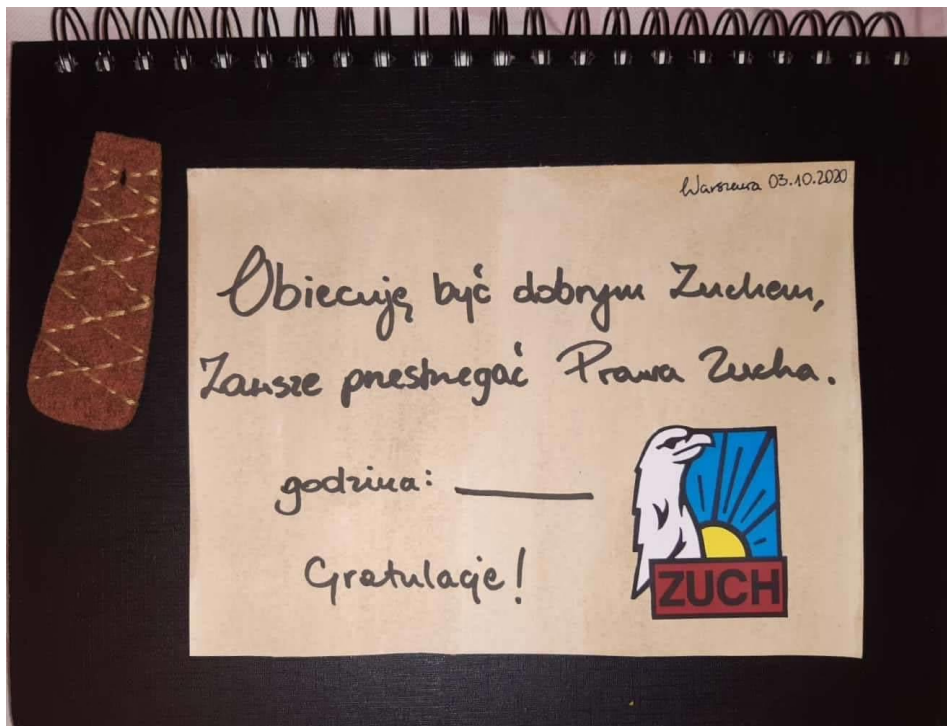 Warszawa 03.10.2020
Obiecuję być dobrym Zuchem,
Zawsze przestrzegać Prawa Zucha.
godzina:
Gratulacje!
ZUCH